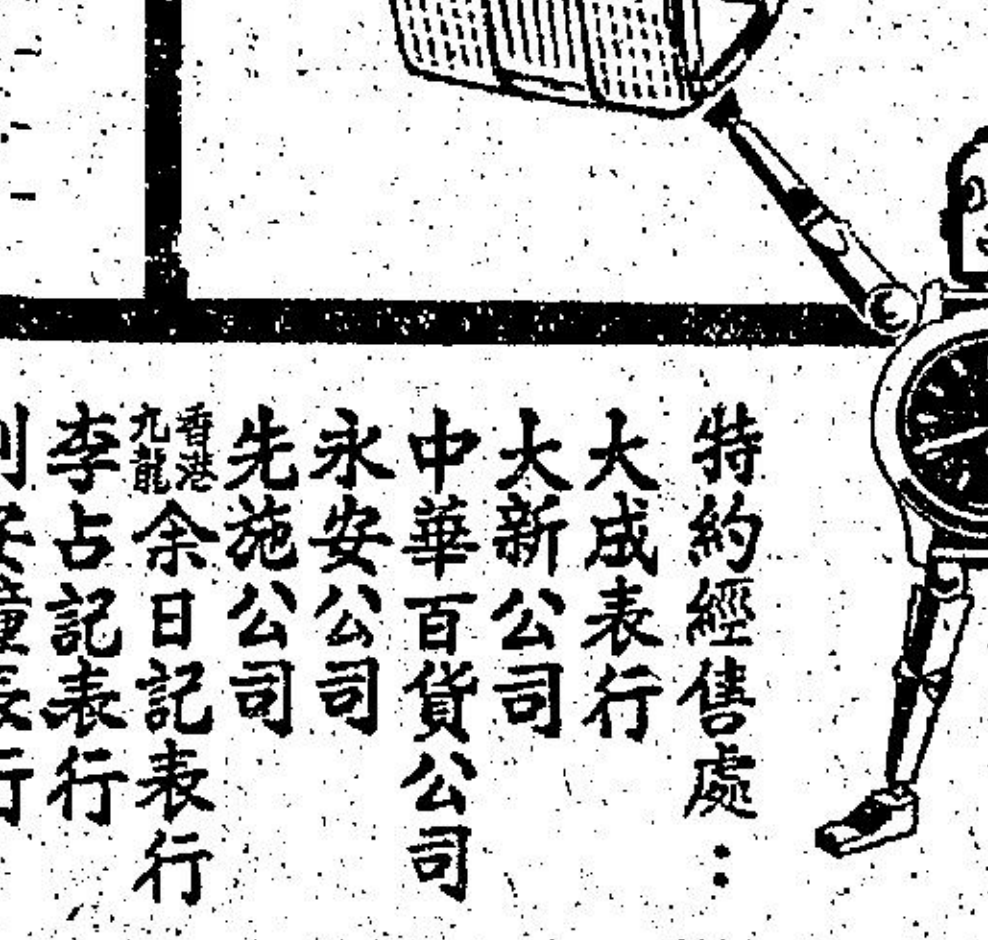 特約經售處：
大成表行
大新公司
中華百貨公司
永安公司
先施公司
香港九龍余日記表行
李占記表行
安鐘表行